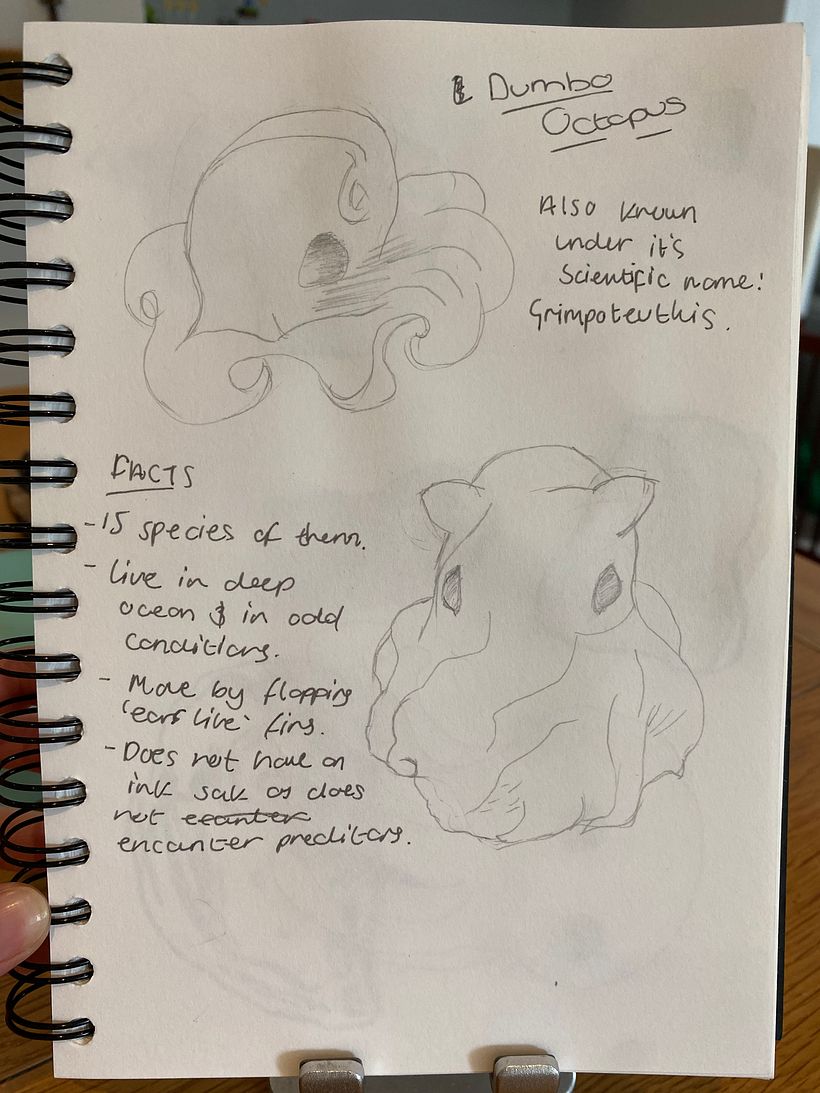 Dumbo
Octopus
Also known
under it's
Scientific name:
Grimpoteuthis.
FACTS
-15 species of them.
- Live in deep
ocean & in odd
conditions.
- Move by flapping
'ears live' fins.
- Does not have an
ink sak as does
not ecounter
encunter preditors.